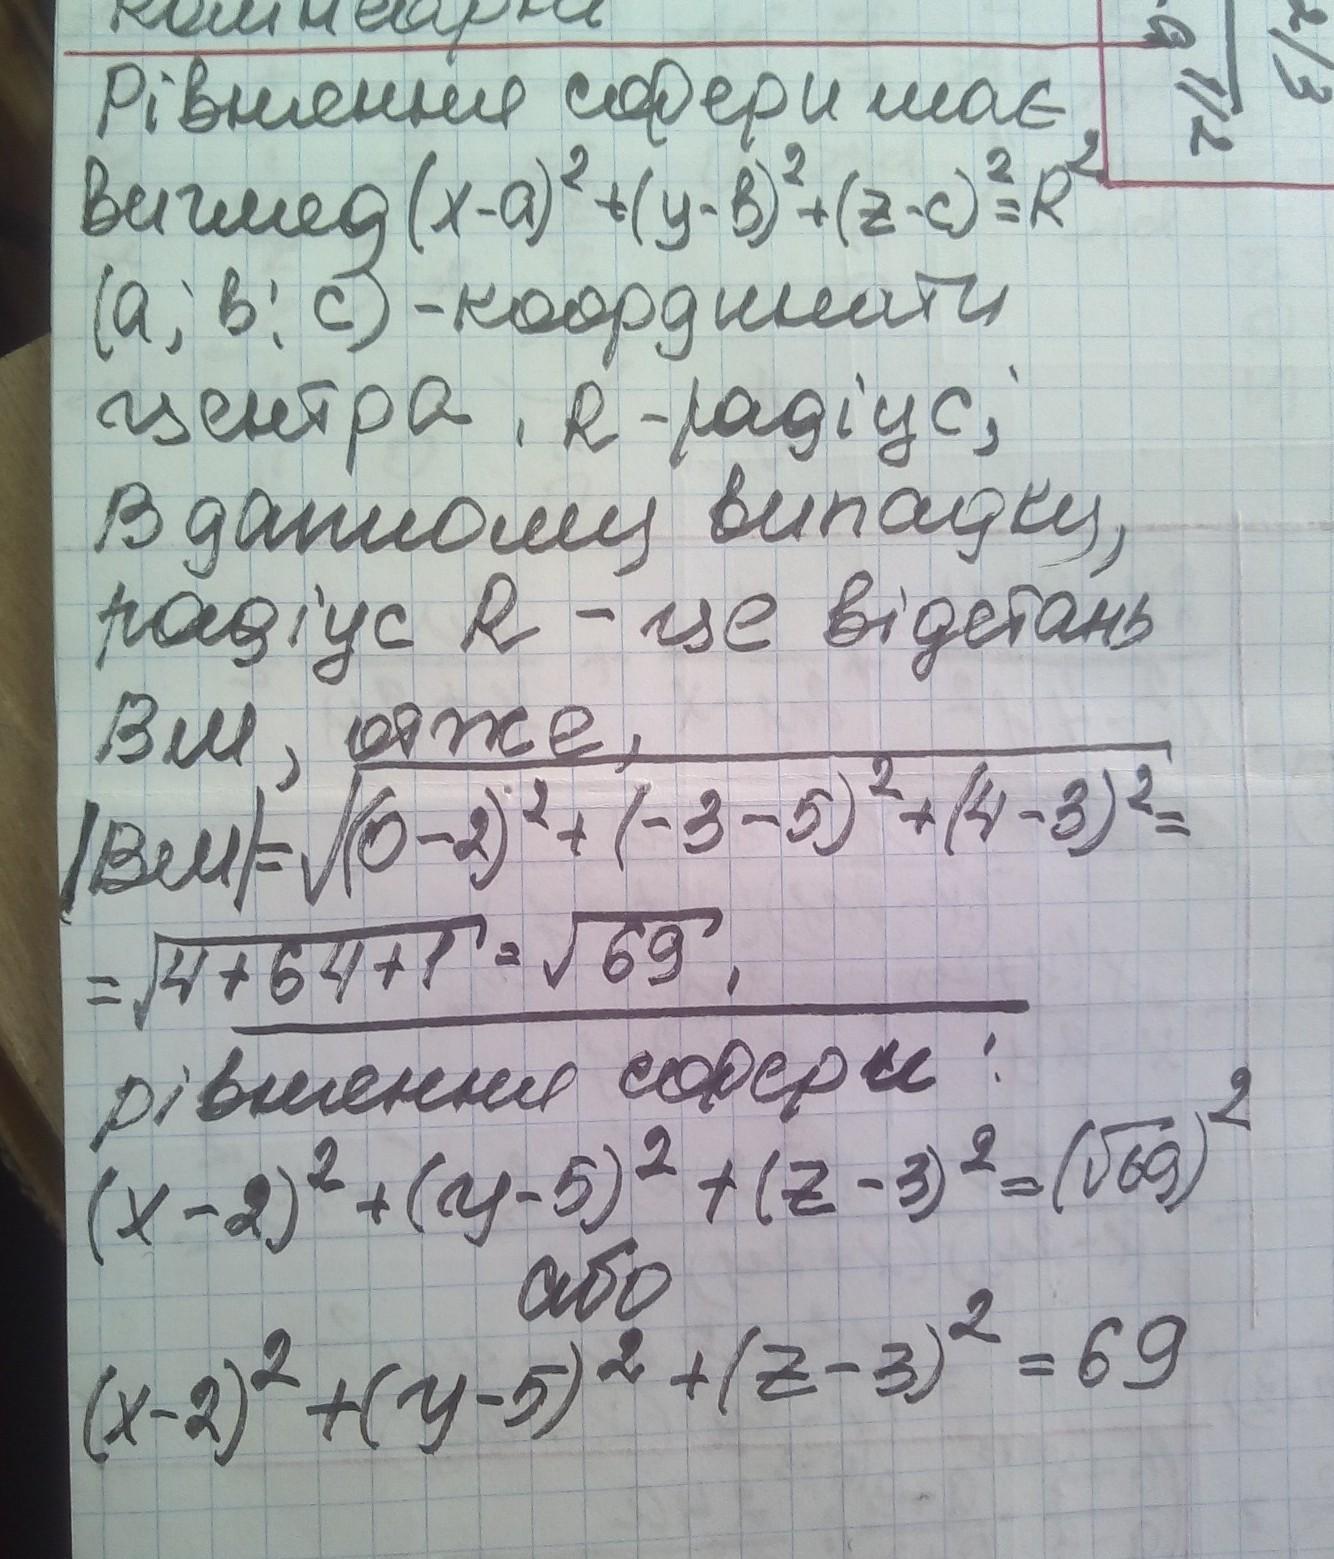 коментарна
Рівняння сфери має
вигляд (x-a)²+(y-в)²+(z-c)²=R²
(a; в; c) - координати
центра, R - радіус;
В даному випадку,
радіус R - це відстань
ВМ, отже,
|BM|=√((0-2)²+(-3-5)²+(4-3)²)=
=√(4+64+1)=√69,
рівняння сфери:
(x-2)²+(y-5)²+(z-3)²=(√69)²
або
(x-2)²+(y-5)²+(z-3)²=69
2/3
1/2